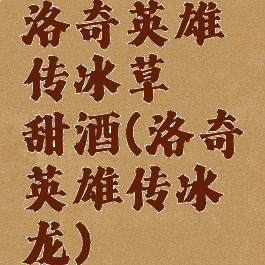 洛奇英雄
传冰草
甜酒(洛奇
英雄传冰
龙)